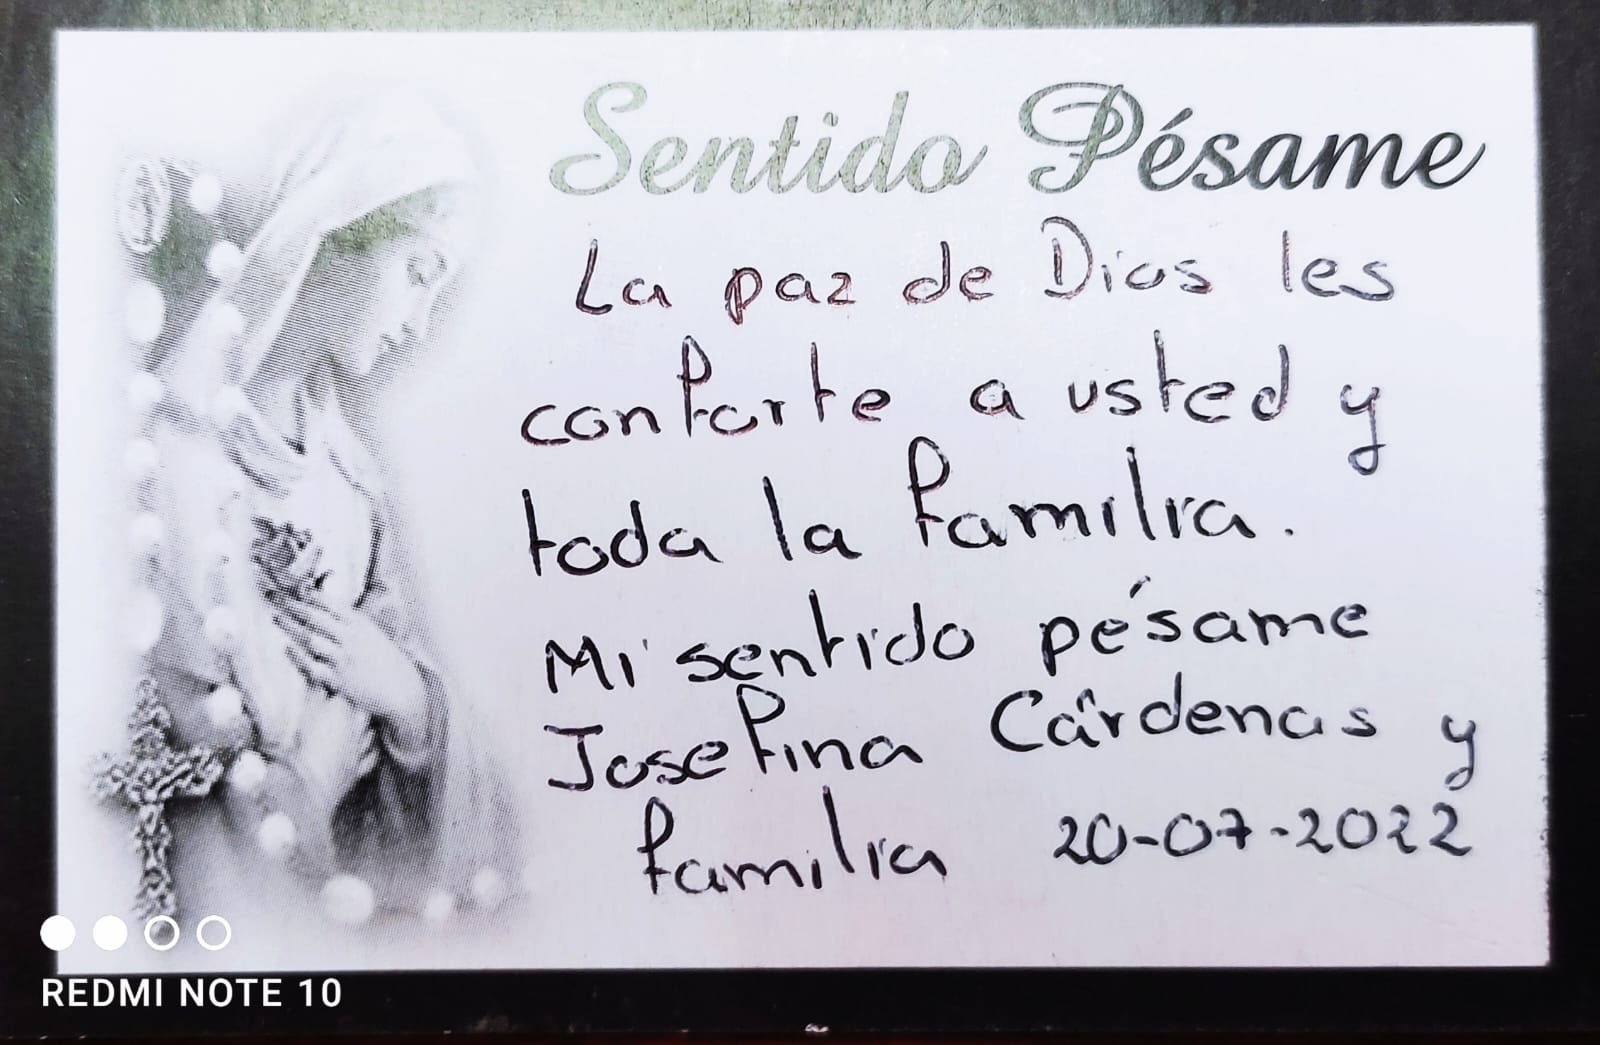 Sentido Pésame
La paz de Dios les
conforte a usted y
toda la familia.
Mi sentido pésame
Josefina Cárdenas y
familia 20-07-2022
REDMI NOTE 10